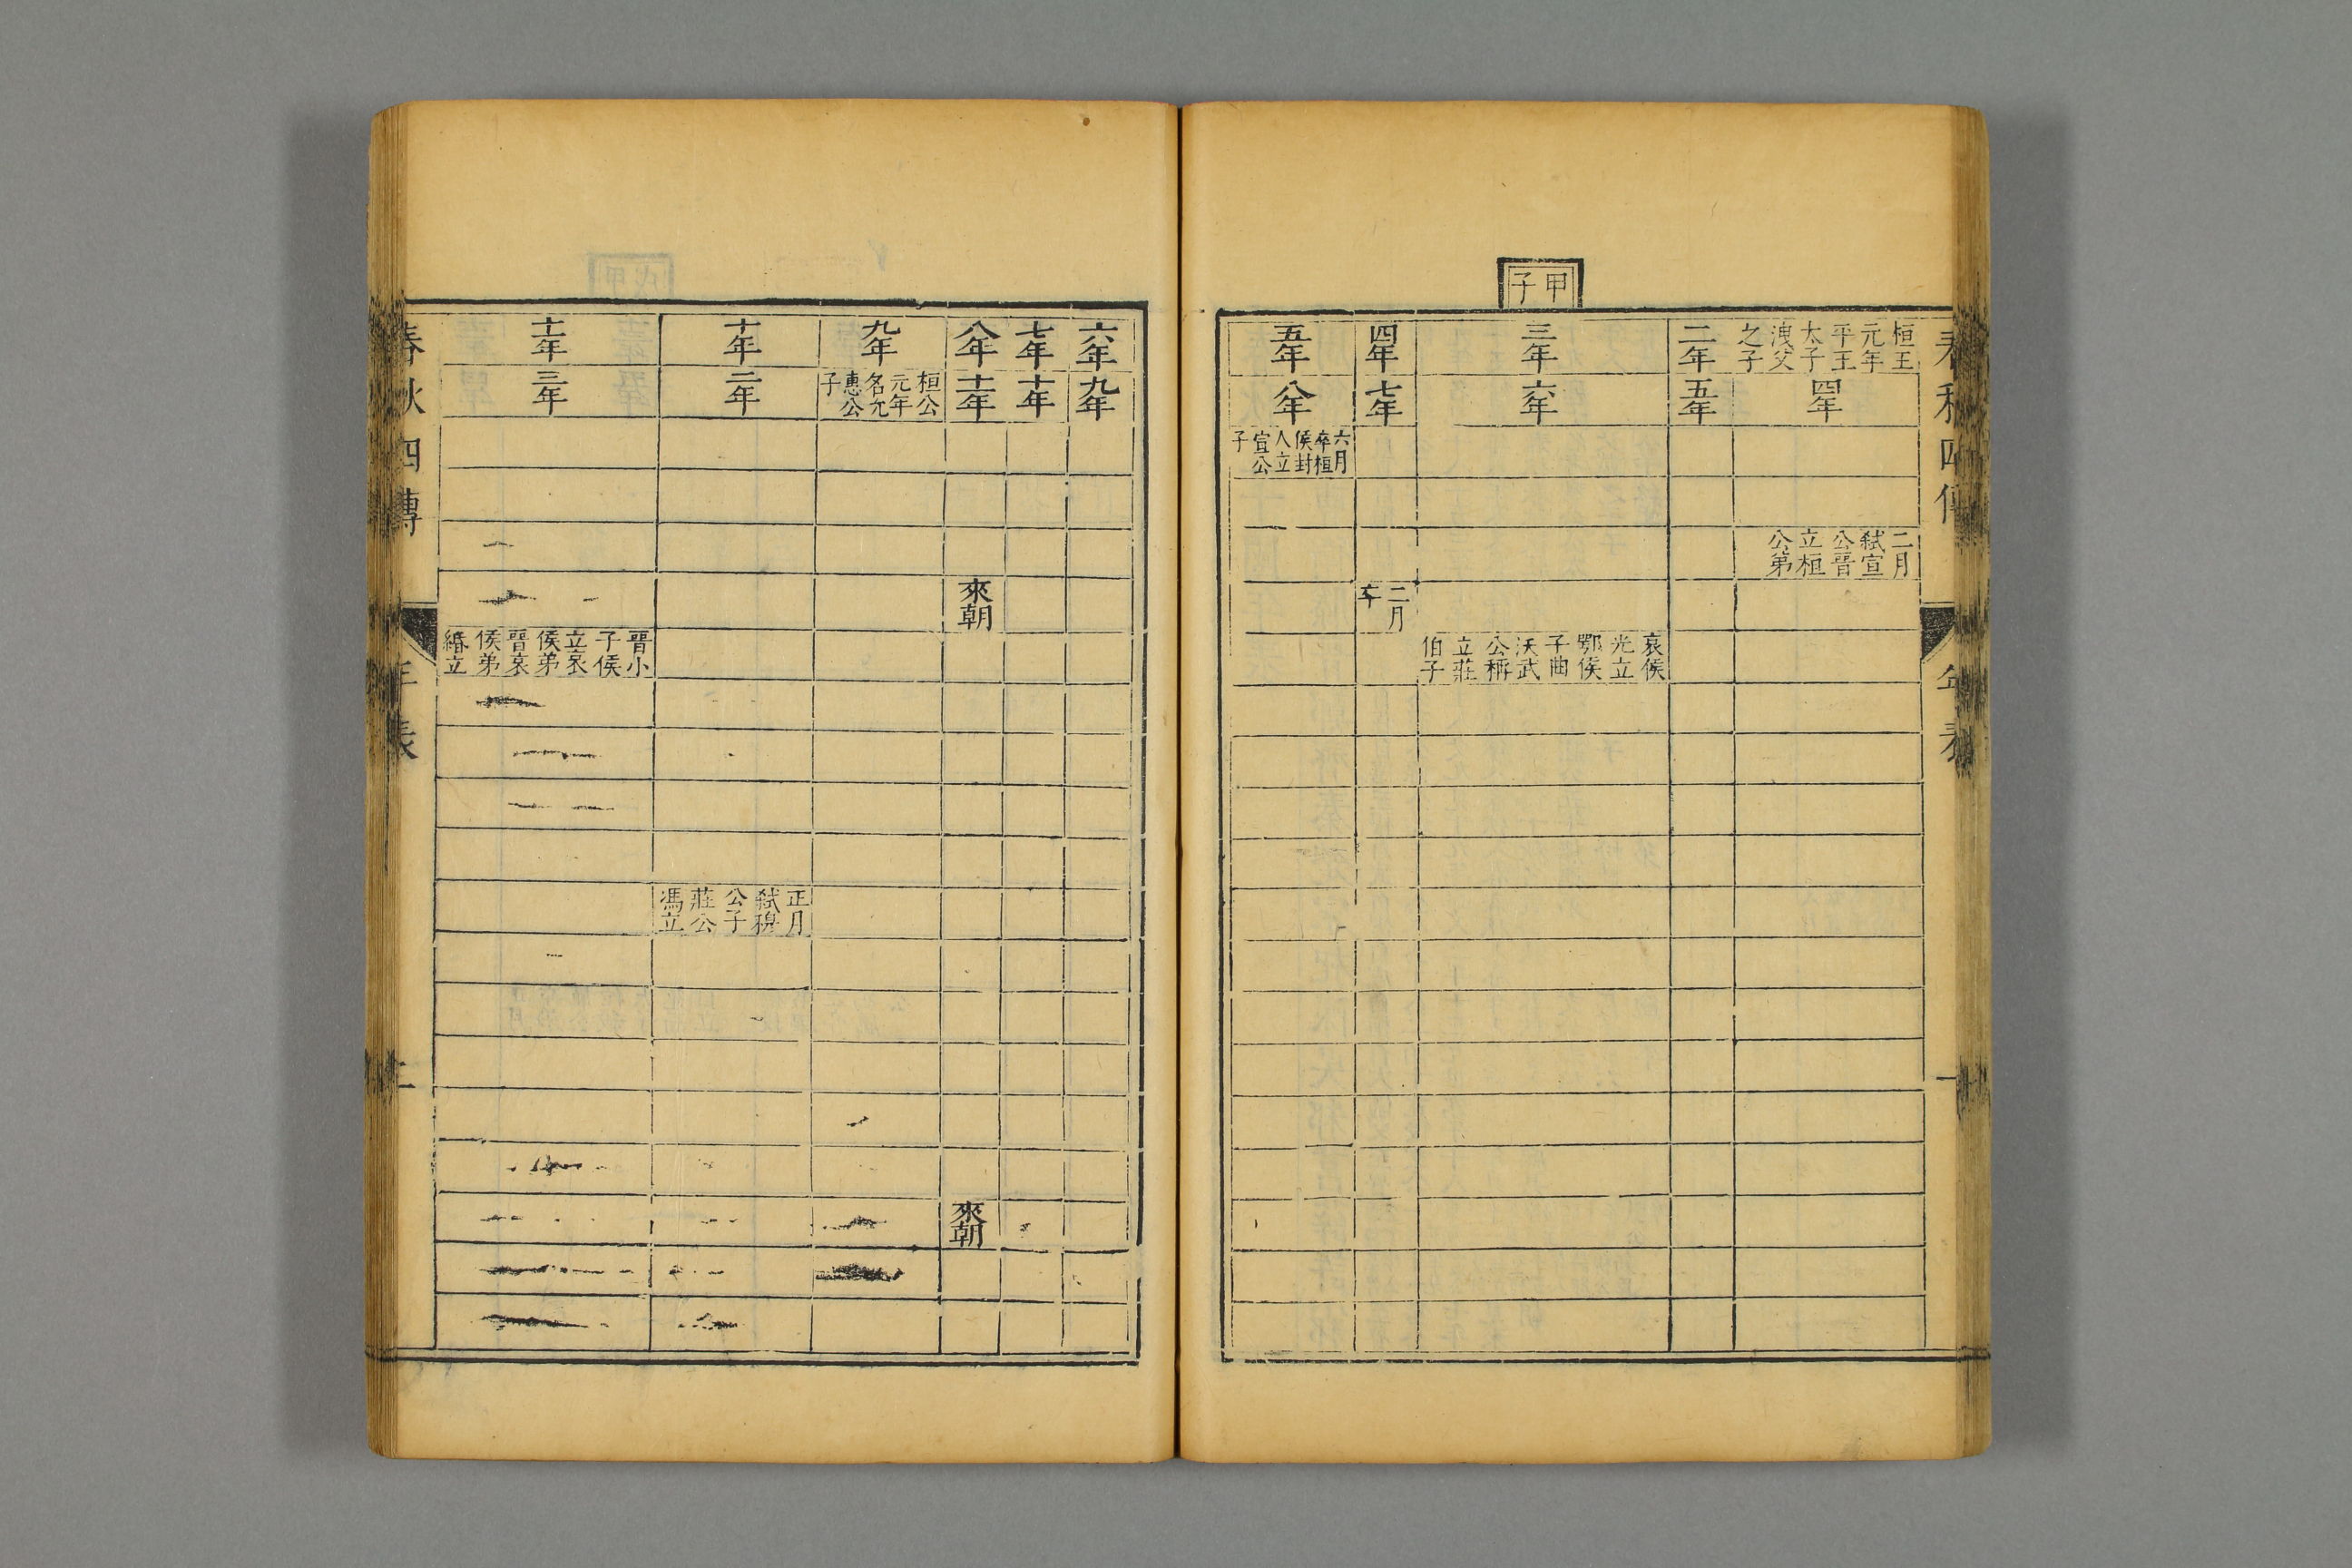 春秋四傳
年表
甲子
桓王
元年
平王
太子
洩父
之子
四年
二月
弑宣
公晋
立桓
公弟
二年
五年
三年
六年
哀侯
光立
鄂侯
子曲
沃武
公稱
立莊
伯子
四年
七年
二月
卒
五年
八年
六月
卒桓
侯封
人立
宣公
子
六年
九年
七年
十年
八年
十一年
來朝
來朝
九年
桓公
元年
名允
惠公
子
十年
二年
正月
弑穆
公子
莊公
馮立
十一年
三年
晋小
子侯
立哀
侯弟
晋哀
侯弟
緡立
春秋四傳
年表